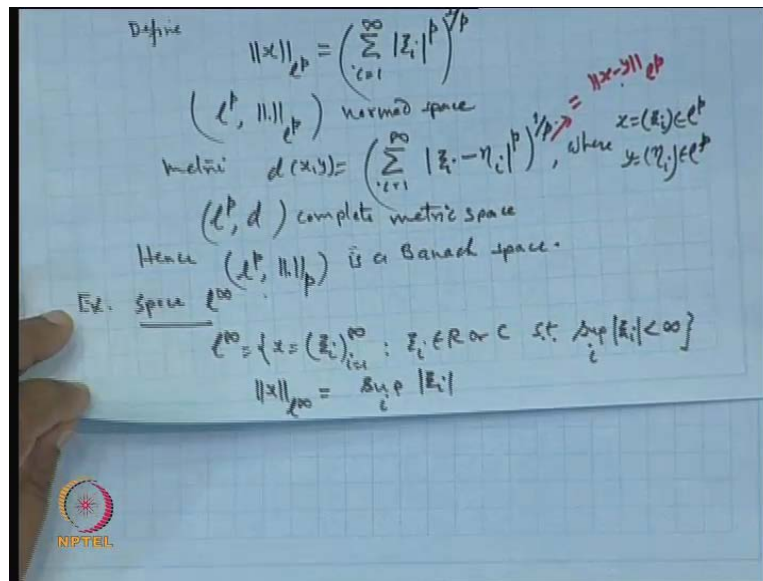 Define
‖x‖_{ℓ^p} = (∑_{i=1}^{∞} |ξ_i|^p)^{1/p}
(ℓ^p, ‖.‖_{ℓ^p}) normed space
metric d(x,y) = (∑_{i=1}^{∞} |ξ_i - η_i|^p)^{1/p}, where x=(ξ_i)∈ℓ^p
= ‖x-y‖_{ℓ^p}
y=(η_i)∈ℓ^p
(ℓ^p, d) complete metric space
Hence (ℓ^p, ‖.‖_p) is a Banach space.
Ex. Space ℓ^∞
ℓ^∞ = {x = (ξ_i)_{i=1}^{∞} : ξ_i ∈ R or C s.t. sup_i |ξ_i| < ∞}
‖x‖_{ℓ^∞} = sup_i |ξ_i|
NPTEL